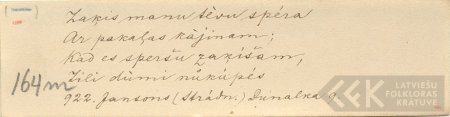 Zaķis manu tēvu spēra
Ar pakaļas kājiņam;
Kad es speršu zaķišam,
Zili dūmi nūkūpēs
164m
922. Jansons (Strādn.) Dunalka
LATVIEŠU
FOLKLORAS
KRĀTUVE